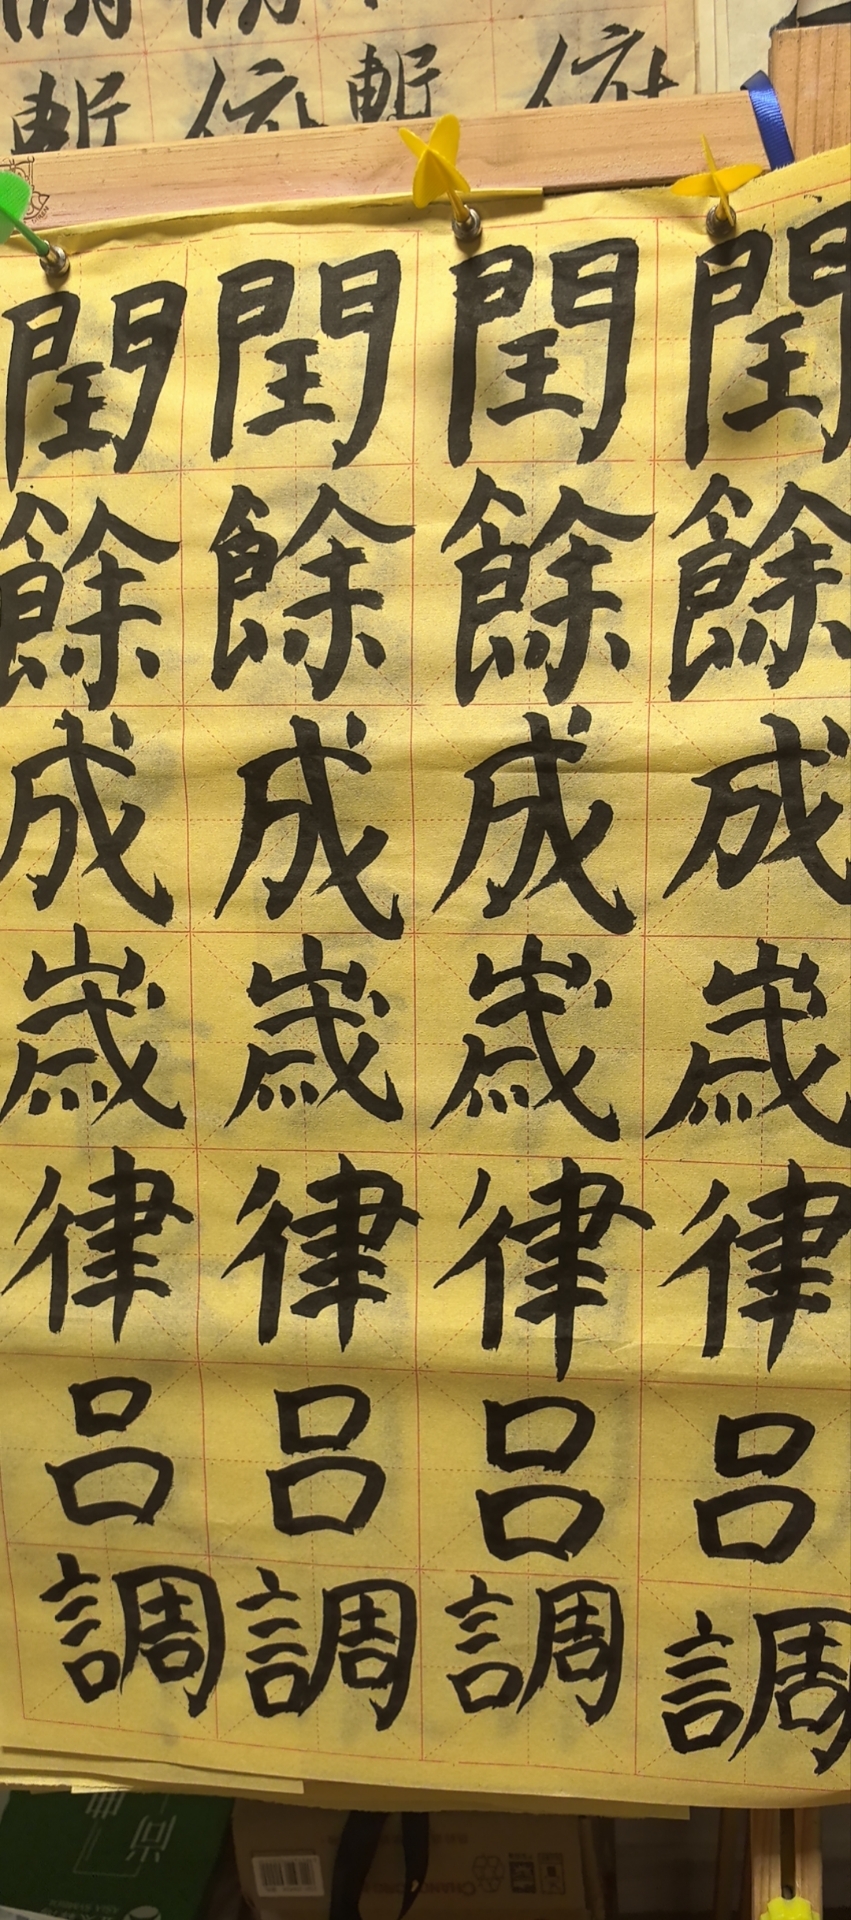 閏餘成歲律呂調
閏餘成歲律呂調
閏餘成歲律呂調
閏餘成歲律呂調